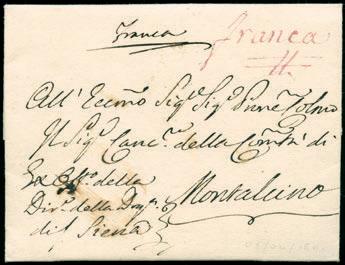 Franca
franca
All' Eccmo Sigr. Sigr. Pnne Colmo
Il Sigr. Cancre. della Comtà di
Montalcino
Ex Offo. della
Dirne. della Dogna.
di Siena